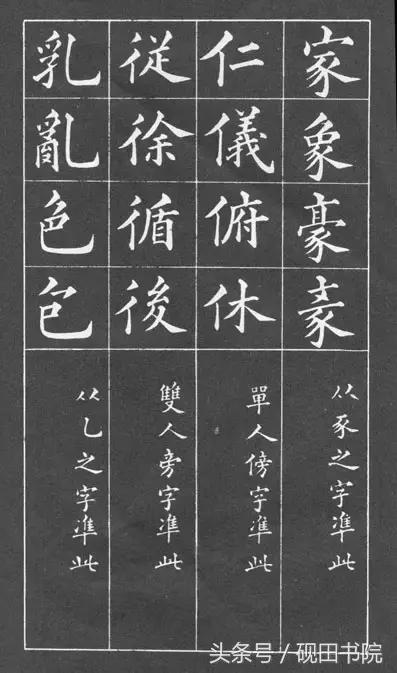 家象豪
从豕之字準此
仁儀俯休
單人傍字準此
従徐循後
雙人旁字準此
乳亂色包
从乙之字準此
头条号／砚田书院